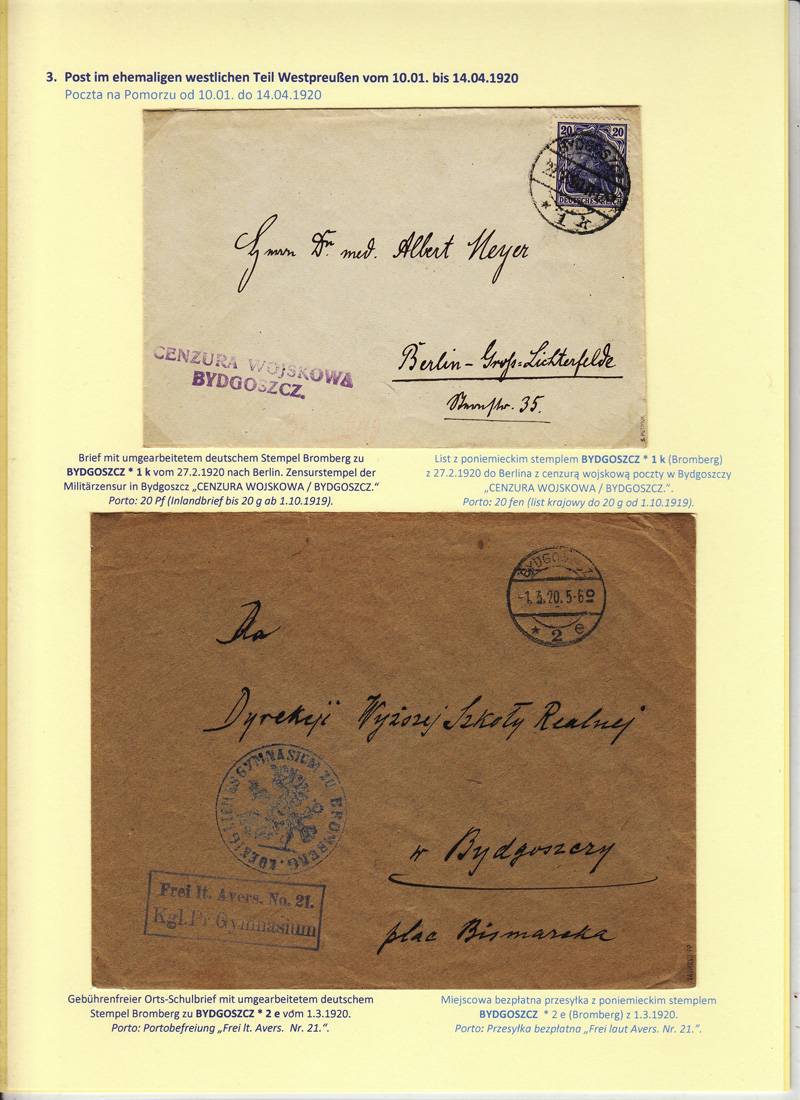 3. Post im ehemaligen westlichen Teil Westpreußen vom 10.01. bis 14.04.1920
Poczta na Pomorzu od 10.01. do 14.04.1920
20 20
DEUTSCHES REICH
BYDGOSZCZ
* 1 k
Herrn Dr. med. Albert Meyer
Berlin-Groß-Lichterfelde
Sternstr. 35.
CENZURA WOJSKOWA
BYDGOSZCZ.
Brief mit umgearbeitetem deutschem Stempel Bromberg zu
BYDGOSZCZ * 1 k vom 27.2.1920 nach Berlin. Zensurstempel der
Militärzensur in Bydgoszcz „CENZURA WOJSKOWA / BYDGOSZCZ.“
Porto: 20 Pf (Inlandbrief bis 20 g ab 1.10.1919).
List z poniemieckim stemplem BYDGOSZCZ * 1 k (Bromberg)
z 27.2.1920 do Berlina z cenzurą wojskową poczty w Bydgoszczy
„CENZURA WOJSKOWA / BYDGOSZCZ.”.
Porto: 20 fen (list krajowy do 20 g od 1.10.1919).
BYDGOSZCZ
-1.3.20. 5-6
* 2 e
Da
Dyrekcji Wyższej Szkoły Realnej
w Bydgoszczy
plac Bismarcka
KOENIGLICHES GYMNASIUM ZU BROMBERG.
Frei lt. Avers. No. 21.
Kgl. Pr Gymnasium
Gebührenfreier Orts-Schulbrief mit umgearbeitetem deutschem
Stempel Bromberg zu BYDGOSZCZ * 2 e vom 1.3.1920.
Porto: Portobefreiung „Frei lt. Avers. Nr. 21.“.
Miejscowa bezpłatna przesyłka z poniemieckim stemplem
BYDGOSZCZ * 2 e (Bromberg) z 1.3.1920.
Porto: Przesyłka bezpłatna „Frei laut Avers. Nr. 21.”.